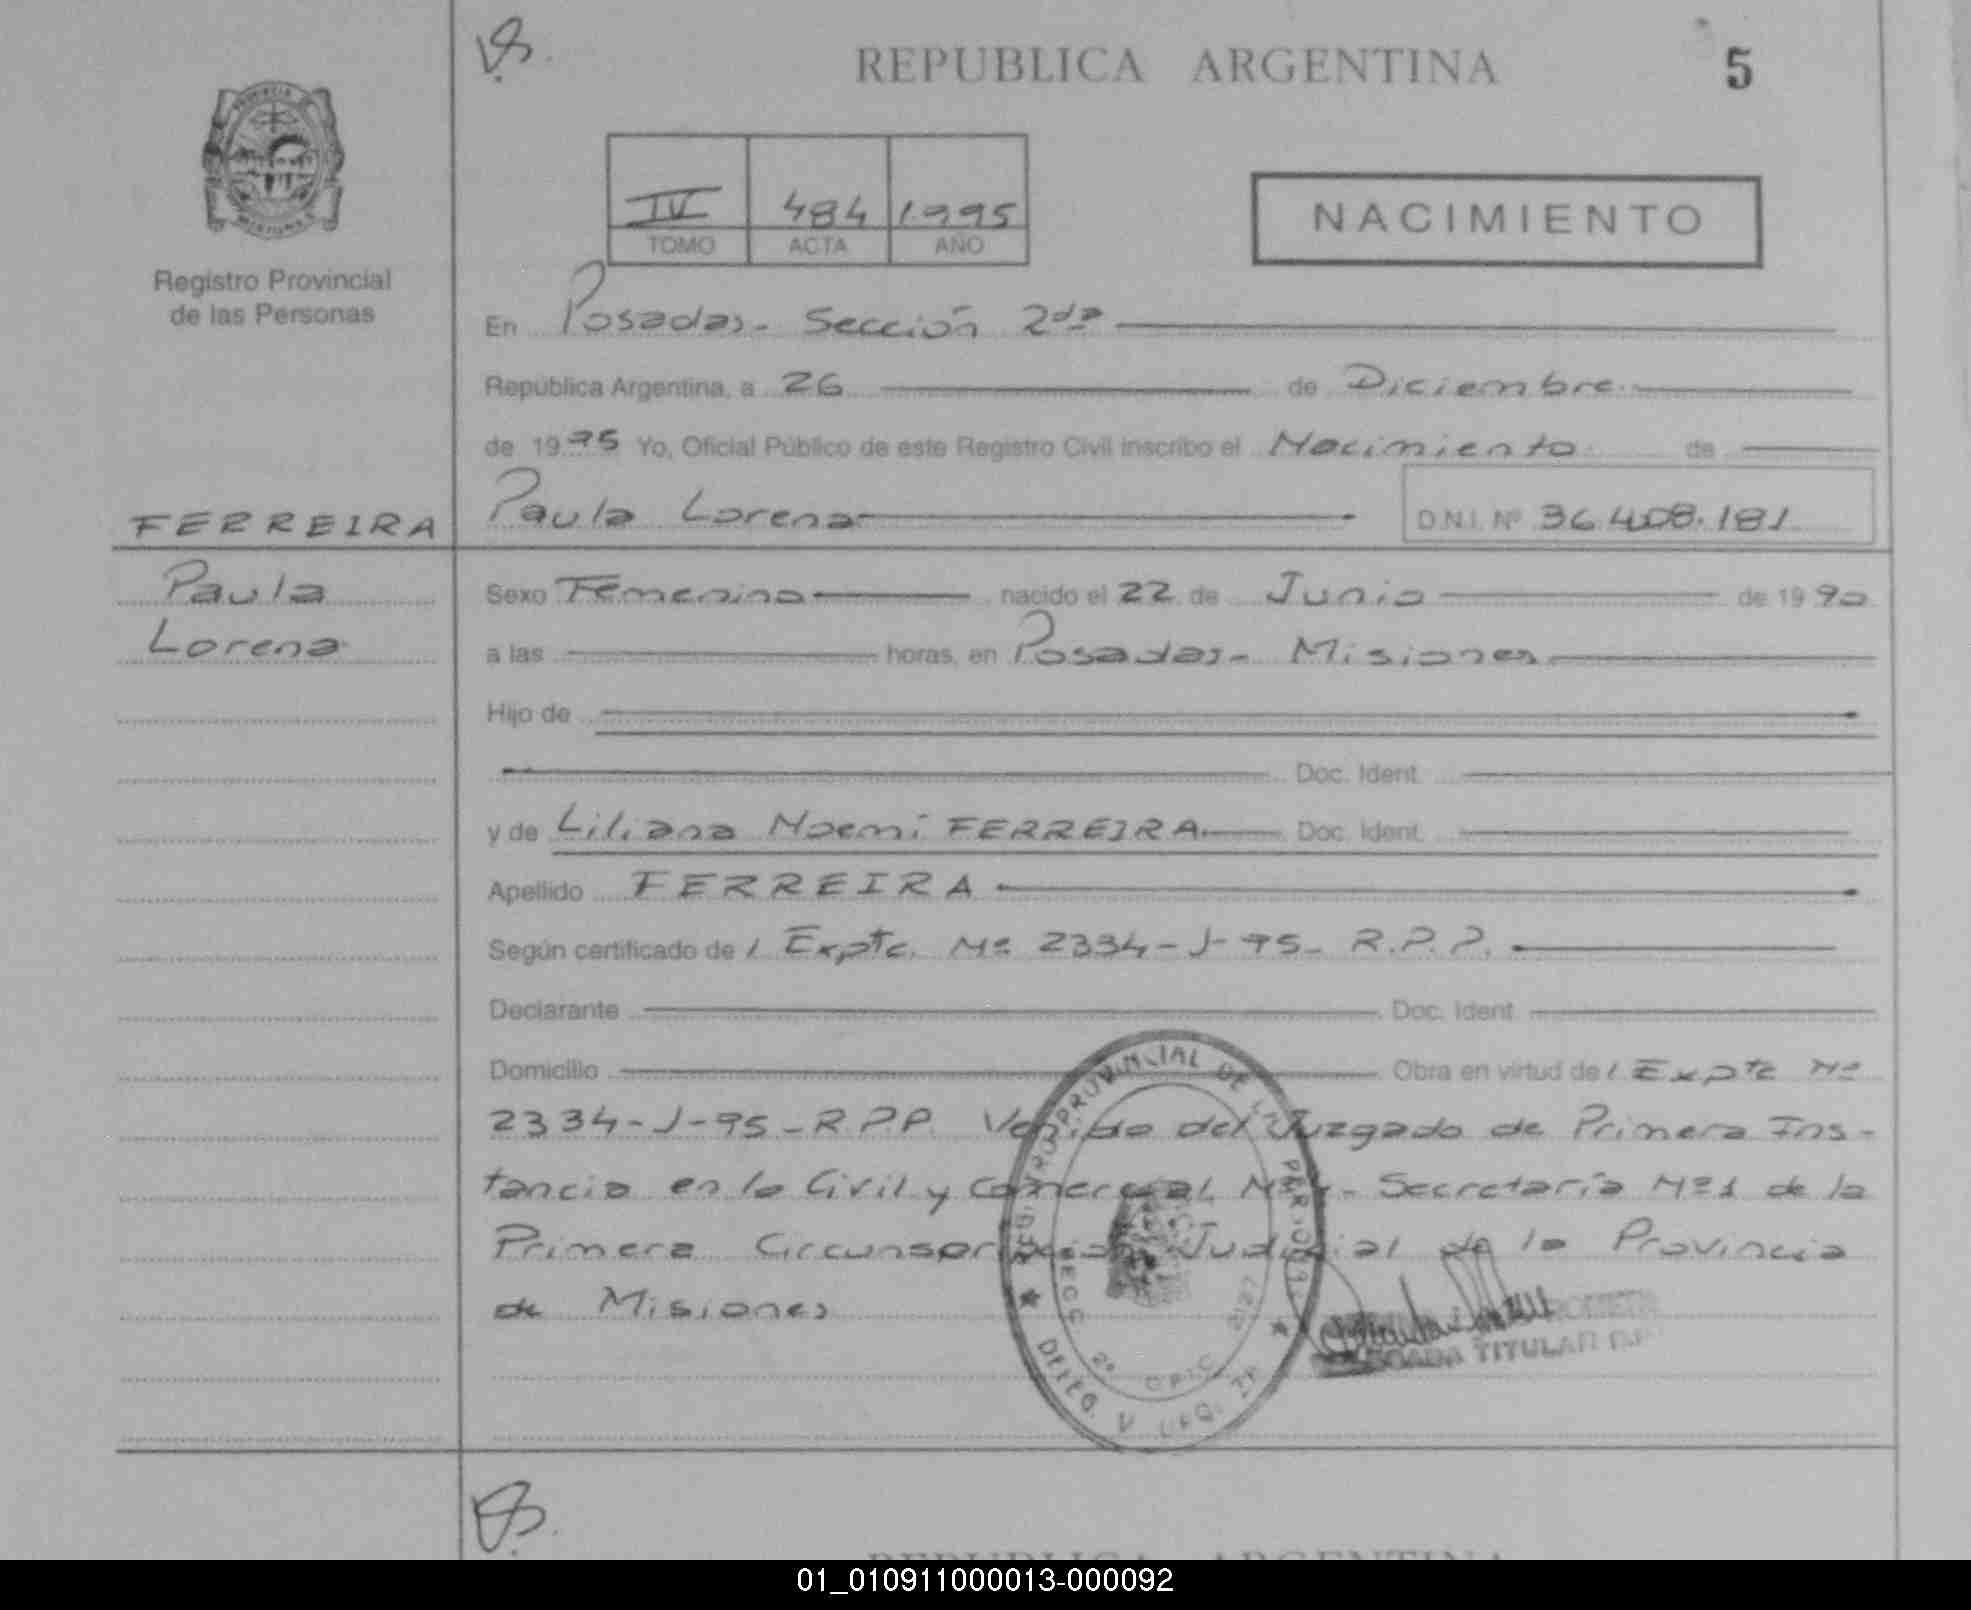 V°B°.
REPUBLICA ARGENTINA
5
IV 484 1995
TOMO ACTA AÑO
NACIMIENTO
Registro Provincial
de las Personas
En Posadas - Sección 2da
República Argentina, a 26 de Diciembre
de 1995 Yo, Oficial Público de este Registro Civil inscribo el Nacimiento de
FERREIRA
Paula Lorena
D.N.I. Nº 36.408.181
Paula
Lorena
Sexo Femenino nacido el 22 de Junio de 1990
a las horas, en Posadas - Misiones
Hijo de
Doc. Ident.
y de Liliana Noemí FERREIRA Doc. Ident.
Apellido FERREIRA
Según certificado de / Expte. Nº 2334-J-95- R.P.P.
Declarante Doc. Ident.
Domicilio Obra en virtud de / Expte Nº
2334-J-95-R.P.P. Venido del Juzgado de Primera Ins-
tancia en lo Civil y Comercial Nº - Secretaría Nº1 de la
Primera Circunscripción Judicial de la Provincia
de Misiones
REGISTRO PROVINCIAL DE LAS PERSONAS
SECC 2º
TITULAR
REPUBLICA ARGENTINA
01_010911000013-000092